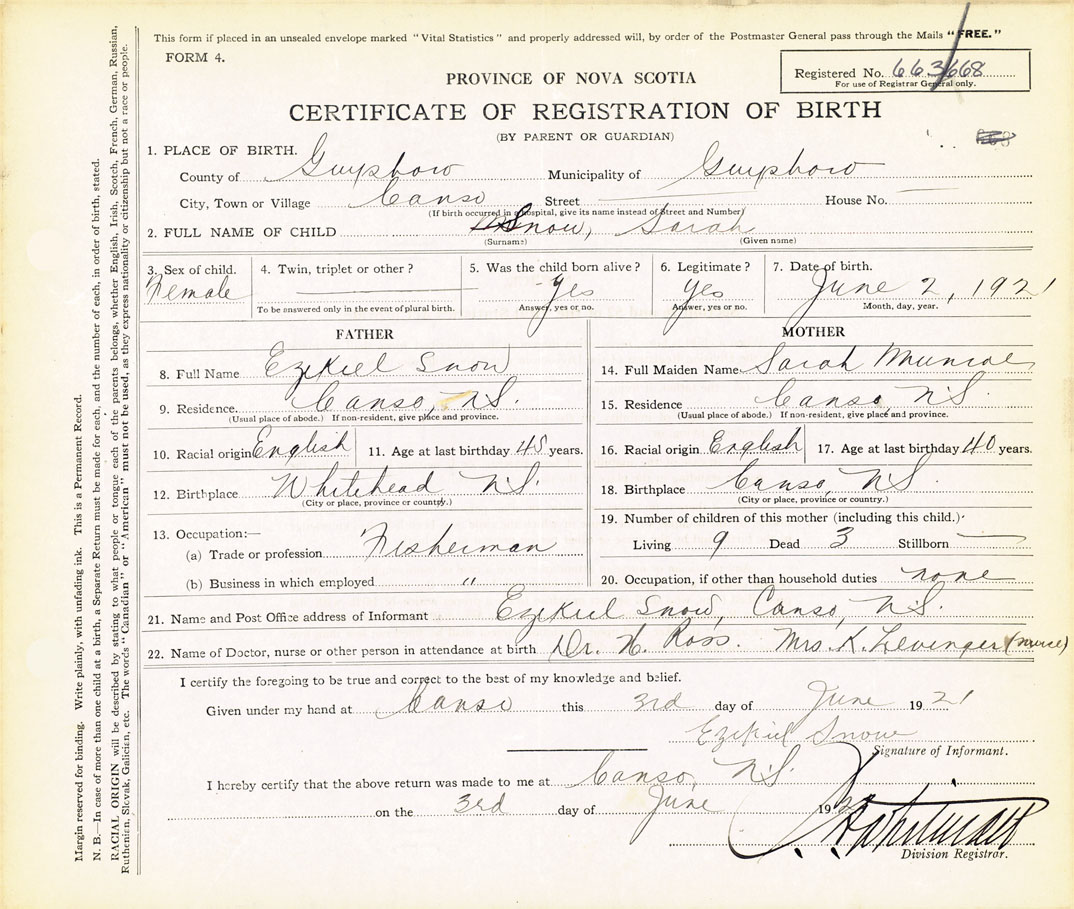 This form if placed in an unsealed envelope marked "Vital Statistics" and properly addressed will, by order of the Postmaster General pass through the Mails "FREE."
FORM 4.
Registered No. 663668
For use of Registrar General only.
PROVINCE OF NOVA SCOTIA
CERTIFICATE OF REGISTRATION OF BIRTH
(BY PARENT OR GUARDIAN)
1. PLACE OF BIRTH.
County of Guysboro Municipality of Guysboro
City, Town or Village Canso Street House No.
(If birth occurred in a hospital, give its name instead of Street and Number)
2. FULL NAME OF CHILD Snow, Sarah
(Surname) (Given name)
3. Sex of child. 4. Twin, triplet or other? 5. Was the child born alive? 6. Legitimate? 7. Date of birth.
Female Yes Yes June 2, 1921
To be answered only in the event of plural birth. Answer, yes or no. Answer, yes or no. Month, day, year.
FATHER
8. Full Name Ezekiel Snow
9. Residence Canso, N.S.
(Usual place of abode.) If non-resident, give place and province.
10. Racial origin English 11. Age at last birthday 48 years.
12. Birthplace Whitehead, N.S.
(City or place, province or country.)
13. Occupation:—
(a) Trade or profession Fisherman
(b) Business in which employed "
MOTHER
14. Full Maiden Name Sarah Munroe
15. Residence Canso, N.S.
(Usual place of abode.) If non-resident, give place and province.
16. Racial origin English 17. Age at last birthday 40 years.
18. Birthplace Canso, N.S.
(City or place, province or country.)
19. Number of children of this mother (including this child.)
Living 9 Dead 3 Stillborn
20. Occupation, if other than household duties none
21. Name and Post Office address of Informant Ezekiel Snow, Canso, N.S.
22. Name of Doctor, nurse or other person in attendance at birth Dr. H. Ross. Mrs. K. (nurse)
I certify the foregoing to be true and correct to the best of my knowledge and belief.
Given under my hand at Canso this 3rd day of June 1921
Ezekiel Snow
Signature of Informant.
I hereby certify that the above return was made to me at Canso, N.S.
on the 3rd day of June 192
Division Registrar.
Margin reserved for binding. Write plainly, with unfading ink. This is a Permanent Record.
N. B.—In case of more than one child at a birth, a Separate Return must be made for each, and the number of each, in order of birth, stated.
RACIAL ORIGIN will be described by stating to what people or tongue each of the parents belongs, whether English, Irish, Scotch, French, German, Russian,
Ruthenian, Slovak, Galicien, etc. The words "Canadian" or "American" must not be used, as they express nationality or citizenship but not a race or people.